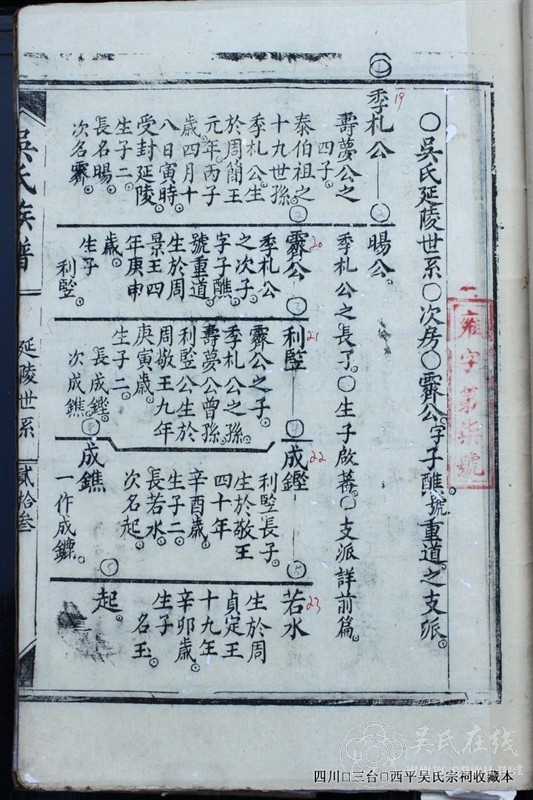 〇吳氏延陵世系〇次房〇霽公字子醮號重道之支派
雍字第柒號
季札公
19
壽夢公之
四子
泰伯祖之
十九世孫
季札公生
於周簡王
元年丙子
歲四月十
八日寅時
受封延陵
生子二
長名暘
次名霽
暘公
季札公之長子〇生子啟蕃〇支派詳前篇
霽公
20
季札公
之次子
字子醮
號重道
生於周
景王四
年庚申
歲
生子
利䀴
利䀴
21
霽公之子
季札公之孫
壽夢公曾孫
利䀴公生於
周敬王九年
庚寅歲
生子二
長成鏗
次成鐎
成鏗
22
利䀴長子
生於敬王
四十年
辛酉歲
生子二
長若水
次名起
成鐎
一作成鏢
若水
23
生於周
貞定王
十九年
辛卯歲
生子
名玉
起
吳氏族譜
延陵世系
貳拾叁
吴氏在线
四川□三台□西平吴氏宗祠收藏本